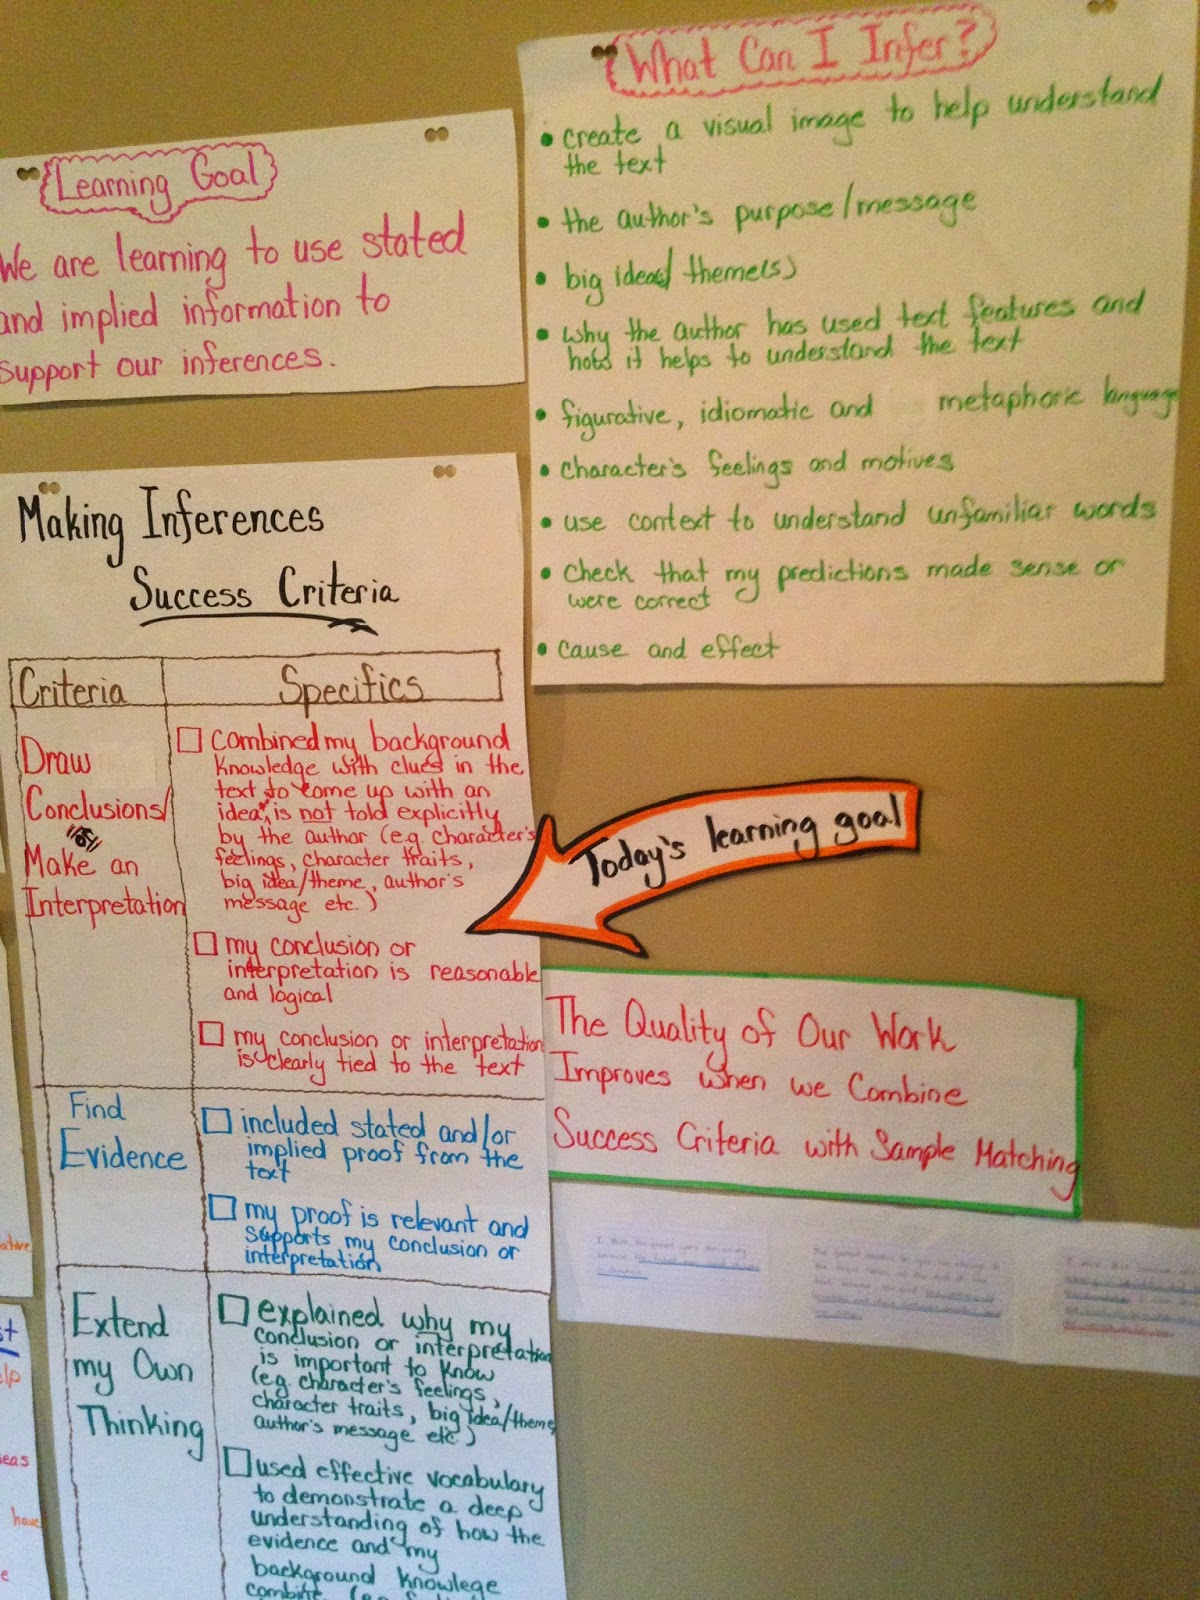 Learning Goal
We are learning to use stated
and implied information to
support our inferences.
What Can I Infer?
• create a visual image to help understand
the text
• the author's purpose/message
• big idea(s)/ theme(s)
• why the author has used text features and
how it helps to understand the text
• figurative, idiomatic and metaphoric language
• character's feelings and motives
• use context to understand unfamiliar words
• check that my predictions made sense or
were correct
• cause and effect
Making Inferences
Success Criteria
Criteria
Specifics
Draw
Conclusions/
"or"
Make an
Interpretation
combined my background
knowledge with clues in the
text to come up with an
idea, is not told explicitly
by the author (e.g. character's
feelings, character traits,
big idea/theme, author's
message etc.)
my conclusion or
interpretation is reasonable
and logical
my conclusion or interpretation
is clearly tied to the text
Find
Evidence
included stated and/or
implied proof from the
text
my proof is relevant and
supports my conclusion or
interpretation
Extend
my Own
Thinking
explained why my
conclusion or interpretation
is important to know
(e.g. character's feelings,
character traits, big idea/theme,
author's message etc.)
used effective vocabulary
to demonstrate a deep
understanding of how the
evidence and my
background knowlege
combine
Today's learning goal
The Quality of Our Work
Improves when we Combine
Success Criteria with Sample Matching
have